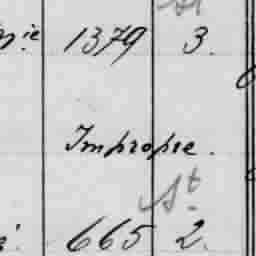 1379 3.
Impropre.
St
665 2.